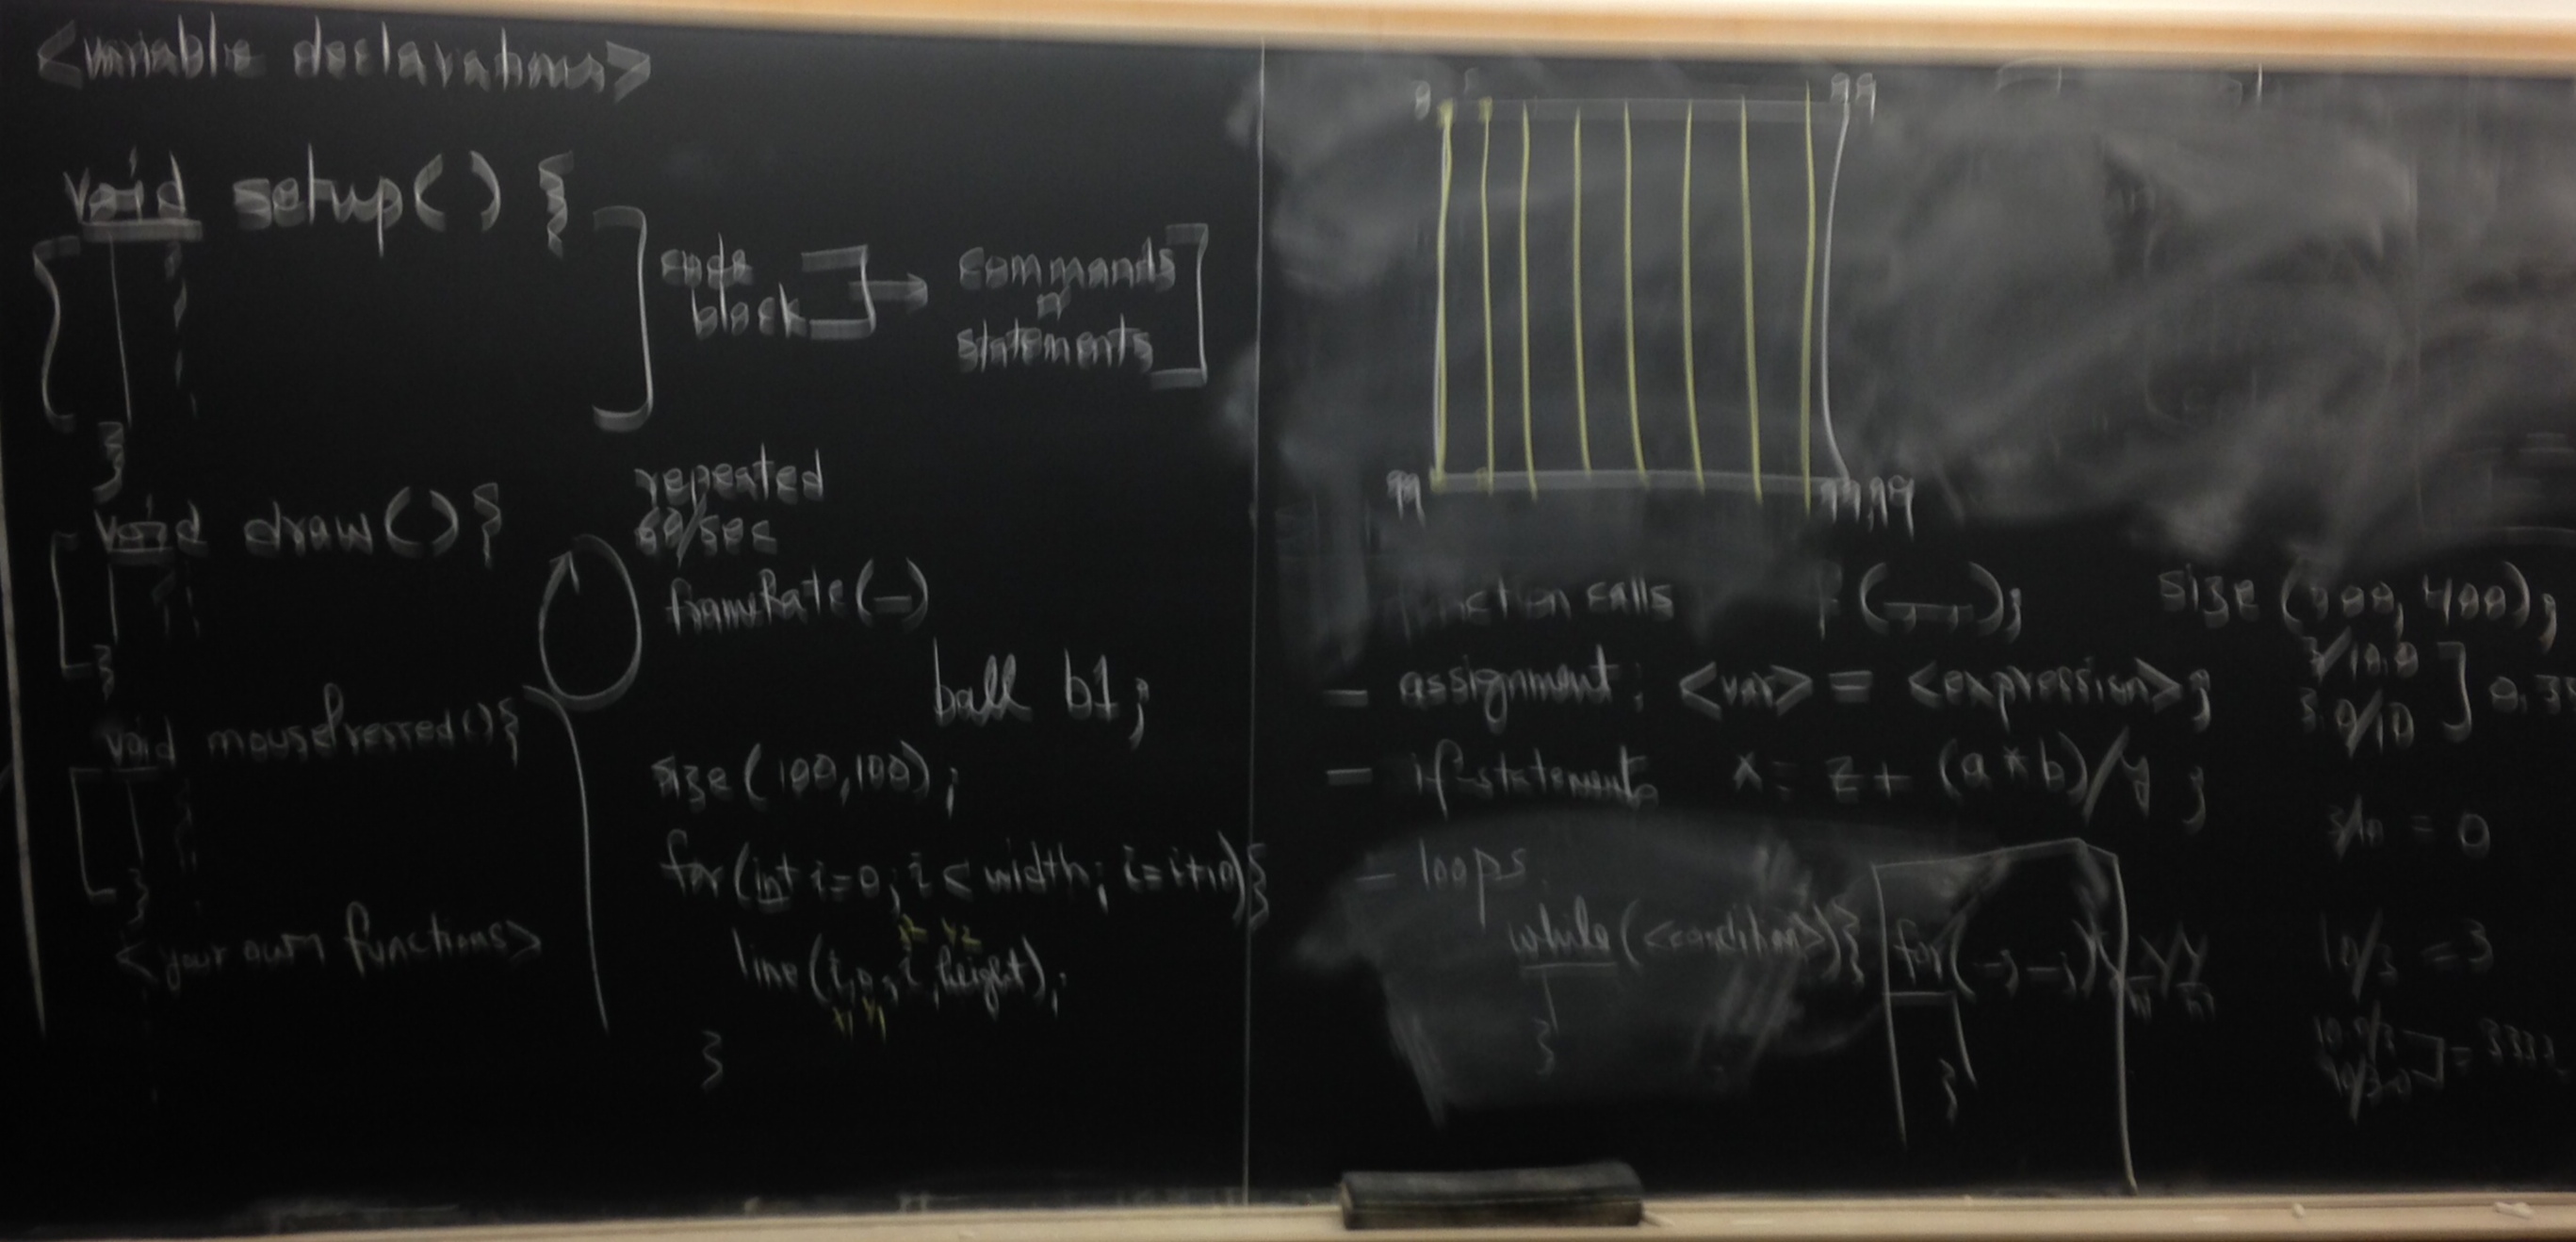 <variable declarations>
void setup() {
code
block → commands
or
statements
}
void draw() {
repeated
60/sec
frameRate(—)
}
ball b1;
void mousePressed() {
}
<your own functions>
size(100,100);
for(int i=0; i < width; i=i+10){
x2 y2
line(i,0,i,height);
x1 y1
}
0
99
99
99,99
function calls
f(_,_);
size(400, 400);
- assignment: <var> = <expression>;
- if-statements
x = z + (a * b)/y ;
- loops
while(<condition>){
}
for(-;-;-){
}
3/10.0
3.0/10
3/10 = 0
10/3 = 3
10.0/3
10/3.0